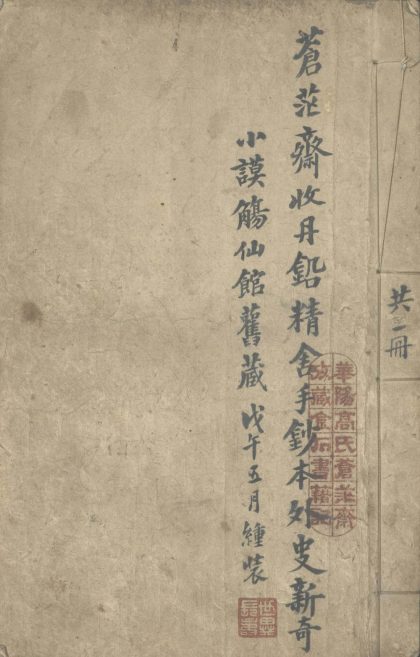 共一冊
蒼茫齋收丹鉛精舍手鈔本外史新奇
小謨觴仙館舊藏 戊午五月緟裝
華陽高氏蒼茫齋
攷藏金石書籍記